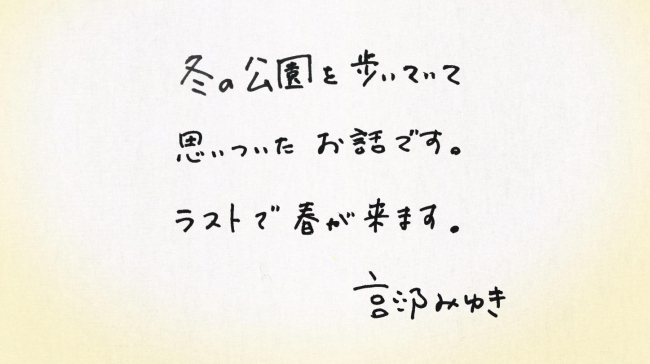 冬の公園を歩いていて
思いついたお話です。
ラストで春が来ます。
宮部みゆき